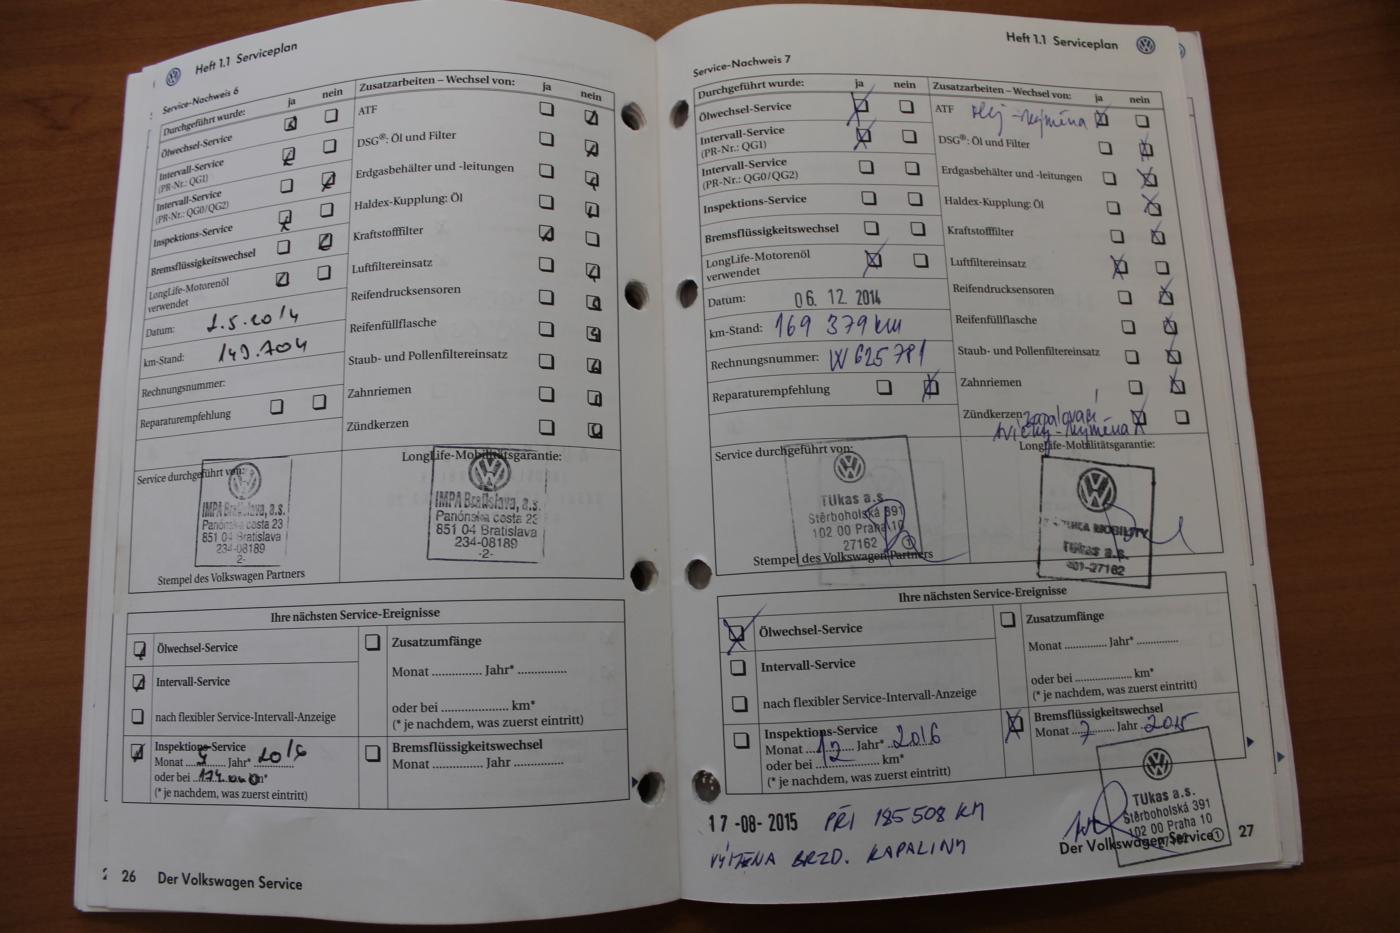 Heft 1.1 Serviceplan
Service-Nachweis 6
Durchgeführt wurde: ja nein
Ölwechsel-Service
Intervall-Service
(PR-Nr.: QG1)
Intervall-Service
(PR-Nr.: QG0/QG2)
Inspektions-Service
Bremsflüssigkeitswechsel
LongLife-Motorenöl
verwendet
Datum: 2.5.2014
km-Stand: 149.704
Rechnungsnummer:
Reparaturempfehlung
Zusatzarbeiten – Wechsel von: ja nein
ATF
DSG®: Öl und Filter
Erdgasbehälter und -leitungen
Haldex-Kupplung: Öl
Kraftstofffilter
Luftfiltereinsatz
Reifendrucksensoren
Reifenfüllflasche
Staub- und Pollenfiltereinsatz
Zahnriemen
Zündkerzen
Service durchgeführt von:
IMPA Bratislava, a.s.
Panónska cesta 23
851 04 Bratislava
234-08189
-2-
Stempel des Volkswagen Partners
LongLife-Mobilitätsgarantie:
IMPA Bratislava, a.s.
Panónska cesta 23
851 04 Bratislava
234-08189
-2-
Ihre nächsten Service-Ereignisse
Ölwechsel-Service
Intervall-Service
nach flexibler Service-Intervall-Anzeige
Inspektions-Service
Monat ........ Jahr* ........
oder bei ........ km*
(* je nachdem, was zuerst eintritt)
Zusatzumfänge
Monat .............. Jahr* ..............
oder bei ...................... km*
(* je nachdem, was zuerst eintritt)
Bremsflüssigkeitswechsel
Monat .............. Jahr ..............
26 Der Volkswagen Service
Heft 1.1 Serviceplan
Service-Nachweis 7
Durchgeführt wurde: ja nein
Ölwechsel-Service
Intervall-Service
(PR-Nr.: QG1)
Intervall-Service
(PR-Nr.: QG0/QG2)
Inspektions-Service
Bremsflüssigkeitswechsel
LongLife-Motorenöl
verwendet
Datum: 06. 12. 2014
km-Stand: 169 379 km
Rechnungsnummer: W 625781
Reparaturempfehlung
Zusatzarbeiten – Wechsel von: ja nein
ATF olej - výměna
DSG®: Öl und Filter
Erdgasbehälter und -leitungen
Haldex-Kupplung: Öl
Kraftstofffilter
Luftfiltereinsatz
Reifendrucksensoren
Reifenfüllflasche
Staub- und Pollenfiltereinsatz
Zahnriemen
Zündkerzen zapalovací
svíčky - výměna
Service durchgeführt von:
TUkas a.s.
Štěrboholská 391
102 00 Praha 10
27162 1
Stempel des Volkswagen Partners
LongLife-Mobilitätsgarantie:
MOBILITY
TUkas a.s.
401-27162
Ihre nächsten Service-Ereignisse
Ölwechsel-Service
Intervall-Service
nach flexibler Service-Intervall-Anzeige
Inspektions-Service
Monat 12 Jahr* 2016
oder bei .................. km*
(* je nachdem, was zuerst eintritt)
Zusatzumfänge
Monat .............. Jahr* ..............
oder bei ...................... km*
(* je nachdem, was zuerst eintritt)
Bremsflüssigkeitswechsel
Monat 7 Jahr 2015
17 -08- 2015 PŘI 185 508 KM
VÝMĚNA BRZD. KAPALINY
TUkas a.s.
Štěrboholská 391
102 00 Praha 10
27162 1
Der Volkswagen Service 27